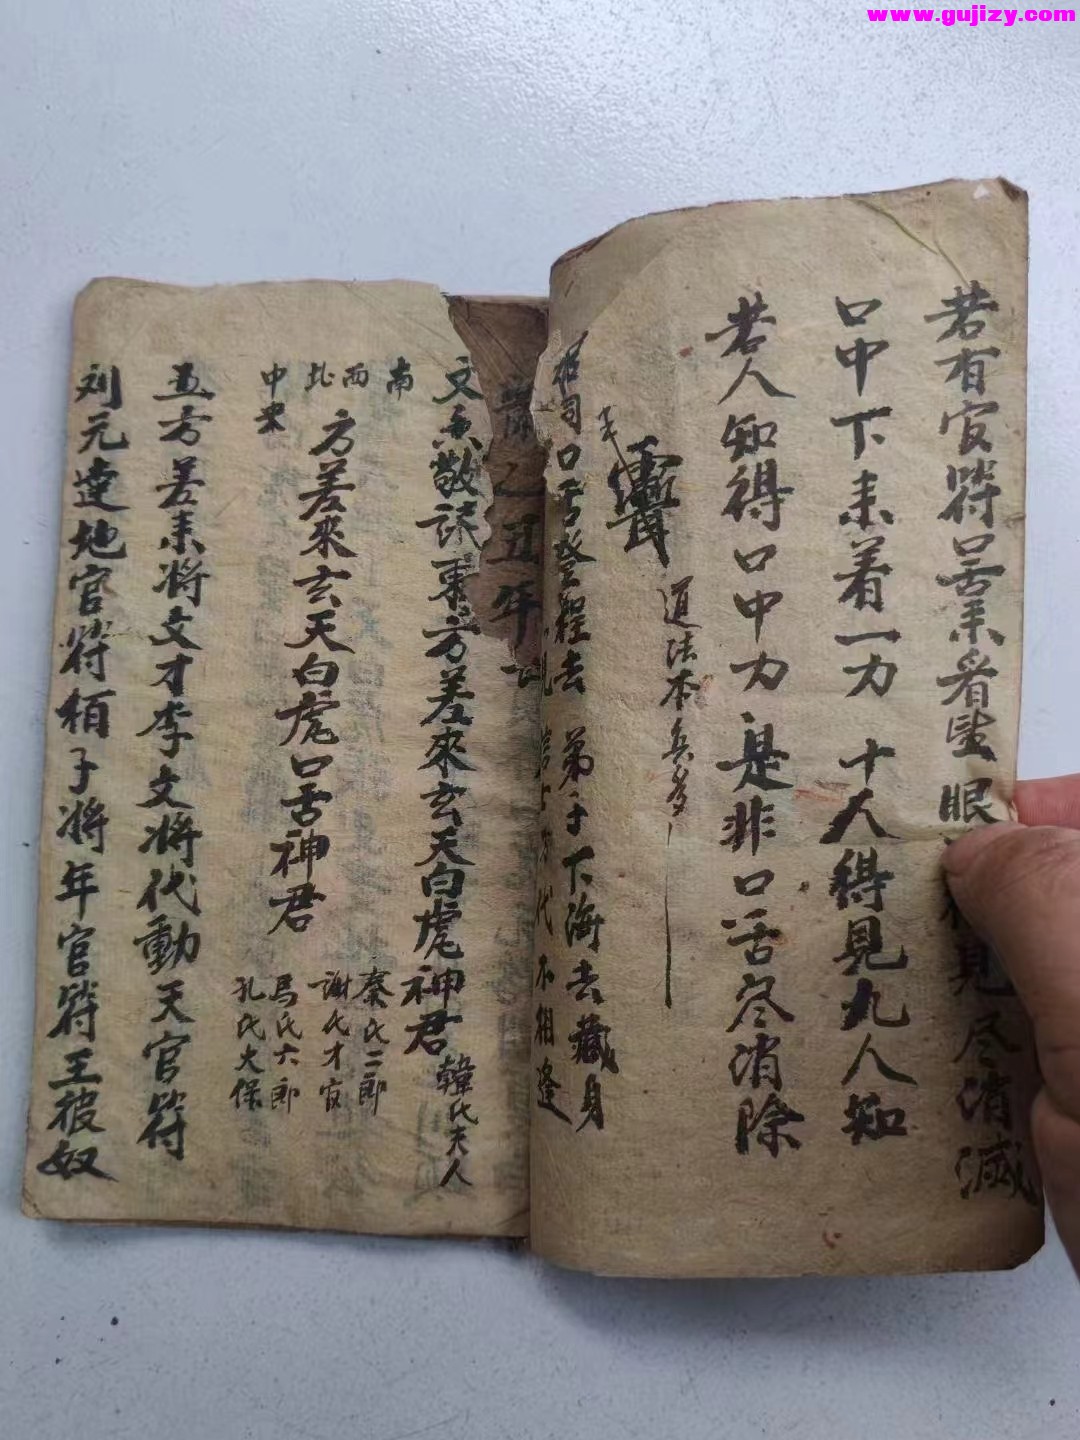 www.gujizy.com
若有官符口舌来看
眼 見尽消滅
口中下来着一力 十人得見九人知
若人知得口中力 是非口舌尽消除
道法本無多
司口舌登程去 弟子下海去藏身
代不相逢
乙丑年
文 敬請東方差來玄天白虎神君 韓氏夫人
南
西
北
中央
方差來玄天白虎口舌神君
秦氏二郎
謝氏才官
馬氏六郎
孔氏大保
五方差来将文才李文将代動天官符
刘元達地官符栢子将年官符王被奴